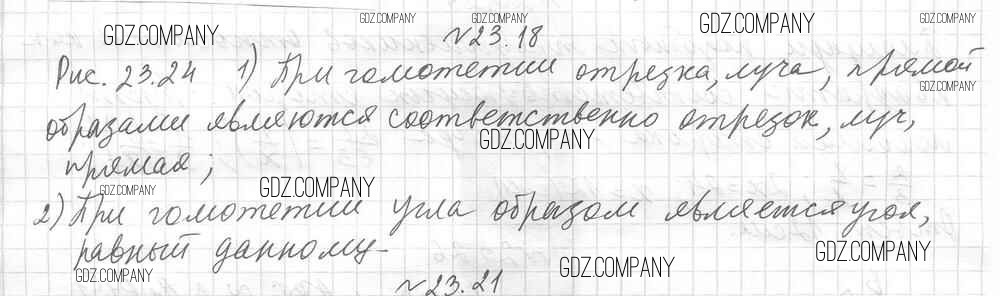 GDZ.COMPANY GDZ.COMPANY GDZ.COMPANY GDZ.COMPANY GDZ.COMPANY
№23.18
Рис. 23.24 1) При гомотетии отрезка, луча, прямой
GDZ.COMPANY
образами являются соответственно отрезок, луч,
GDZ.COMPANY
прямая;
GDZ.COMPANY GDZ.COMPANY
2) При гомотетии угла образом является угол,
равный данному.
GDZ.COMPANY GDZ.COMPANY GDZ.COMPANY
№23.21